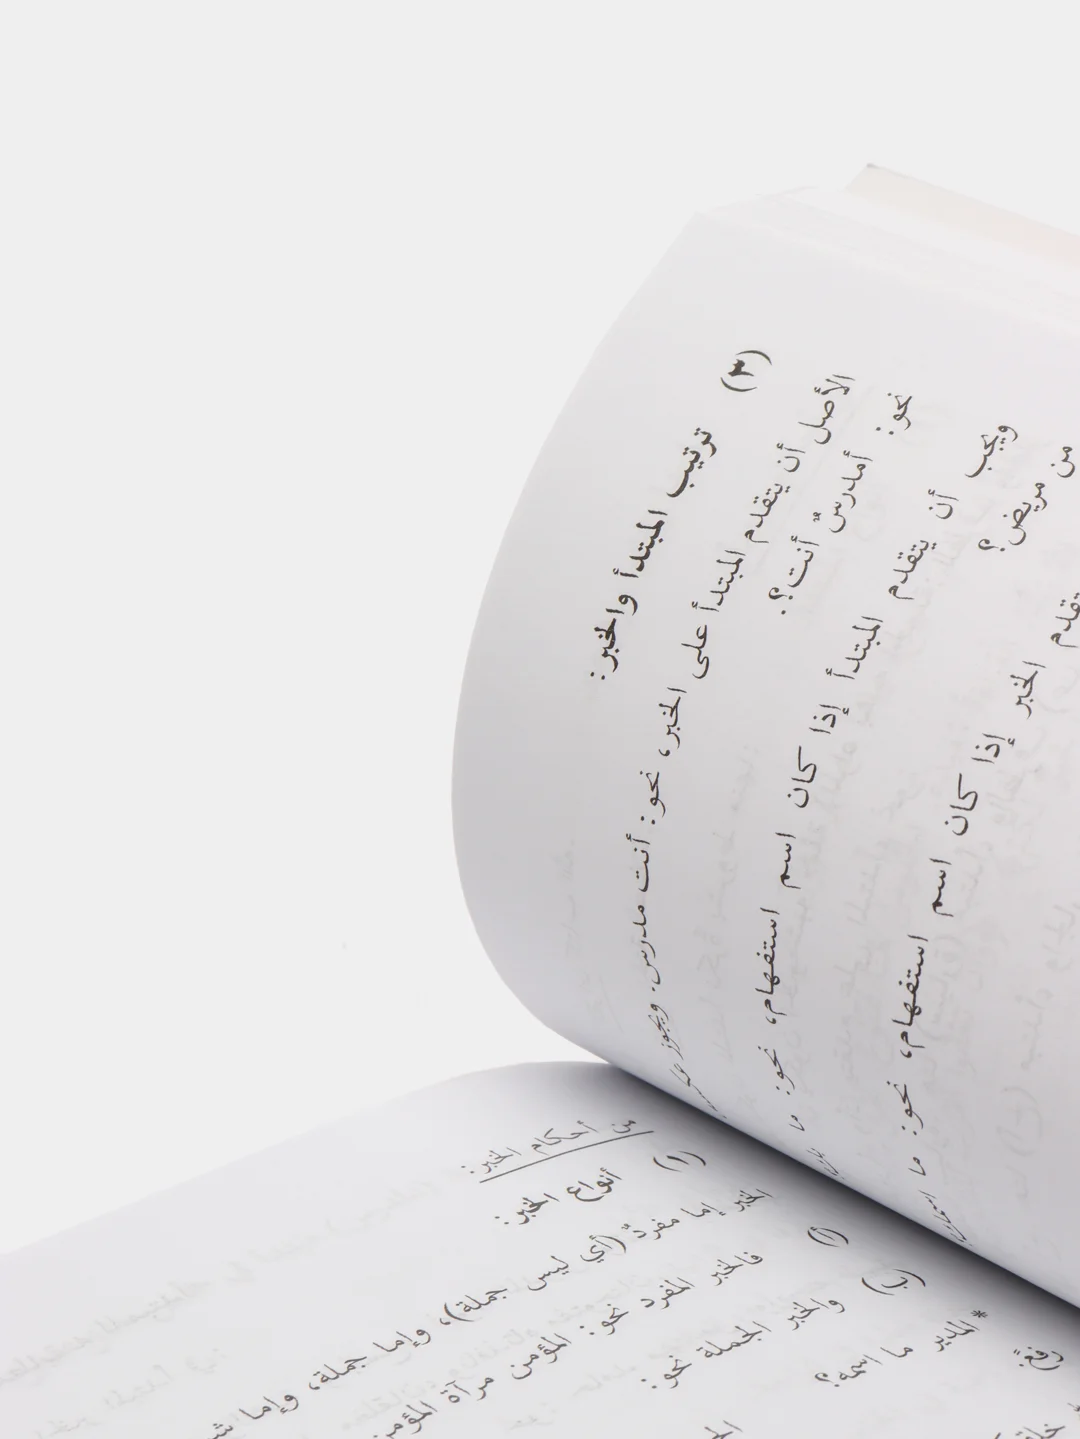 (٣) ترتيب المبتدأ والخبر:
الأصل أن يتقدم المبتدأ على الخبر، نحو: أنت مدرس. ويجوز
نحو: أمدرسٌ أنت؟.
ويجب أن يتقدم المبتدأ إذا كان اسم استفهام، نحو: ما
من مريض؟
الخبر إذا كان اسم استفهام، نحو: ما
من أحكام الخبر:
(١) أنواع الخبر:
الخبر إما مفردٌ (أي ليس جملة)، وإما جملة، وإما
(أ) فالخبر المفرد نحو: المؤمن مرآة
(ب) والخبر الجملة نحو:
*المدير ما اسمه؟